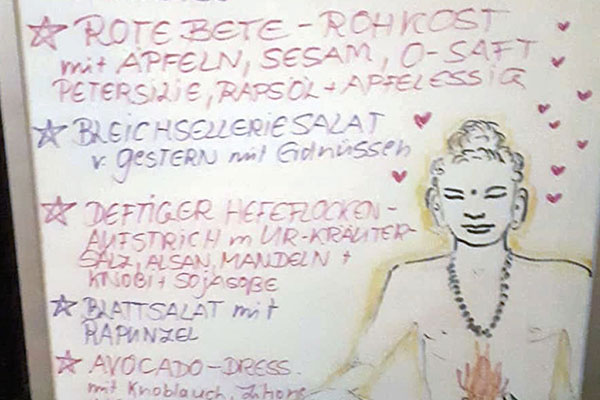 ROTE BETE - ROHKOST
mit ÄPFELN, SESAM, O-SAFT
PETERSILIE, RAPSÖL + APFELESSIG
BLEICHSELLERIESALAT
v. GESTERN mit Erdnüssen
DEFTIGER HEFEFLOCKEN-
AUFSTRICH m UR-KRÄUTER-
SALZ, ALSAN, MANDELN +
KNOBI + SOJASOßE
BLATTSALAT mit
RAPUNZEL
AVOCADO-DRESS.
mit Knoblauch, Zitrone